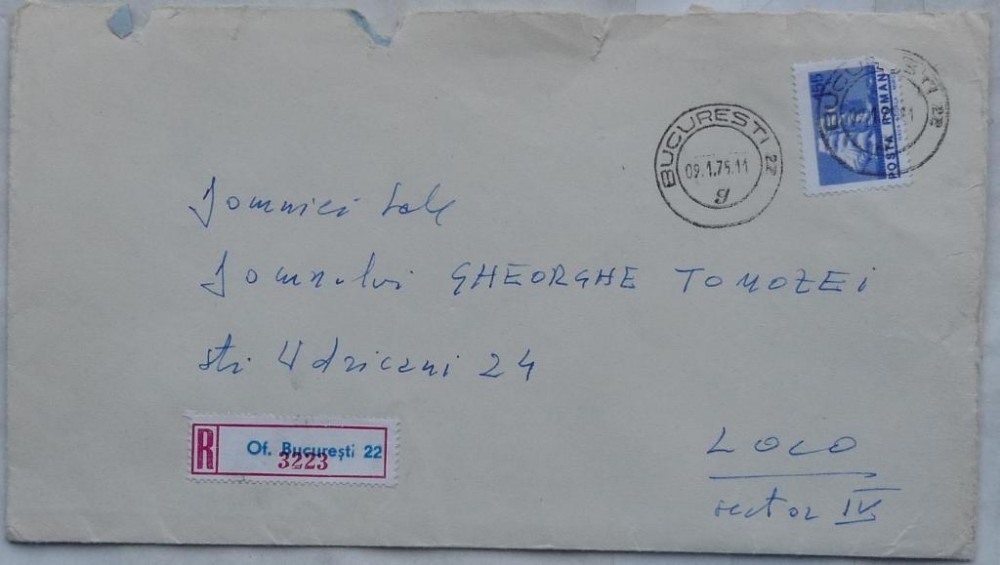 BUCUREȘTI 22
09.1.75.11
g
BUCUREȘTI 22
POSTA ROMANA
Domniei Sale
Domnului GHEORGHE TOMOZEI
str Udricani 24
R Of. București 22
3223
LOCO
sector IV